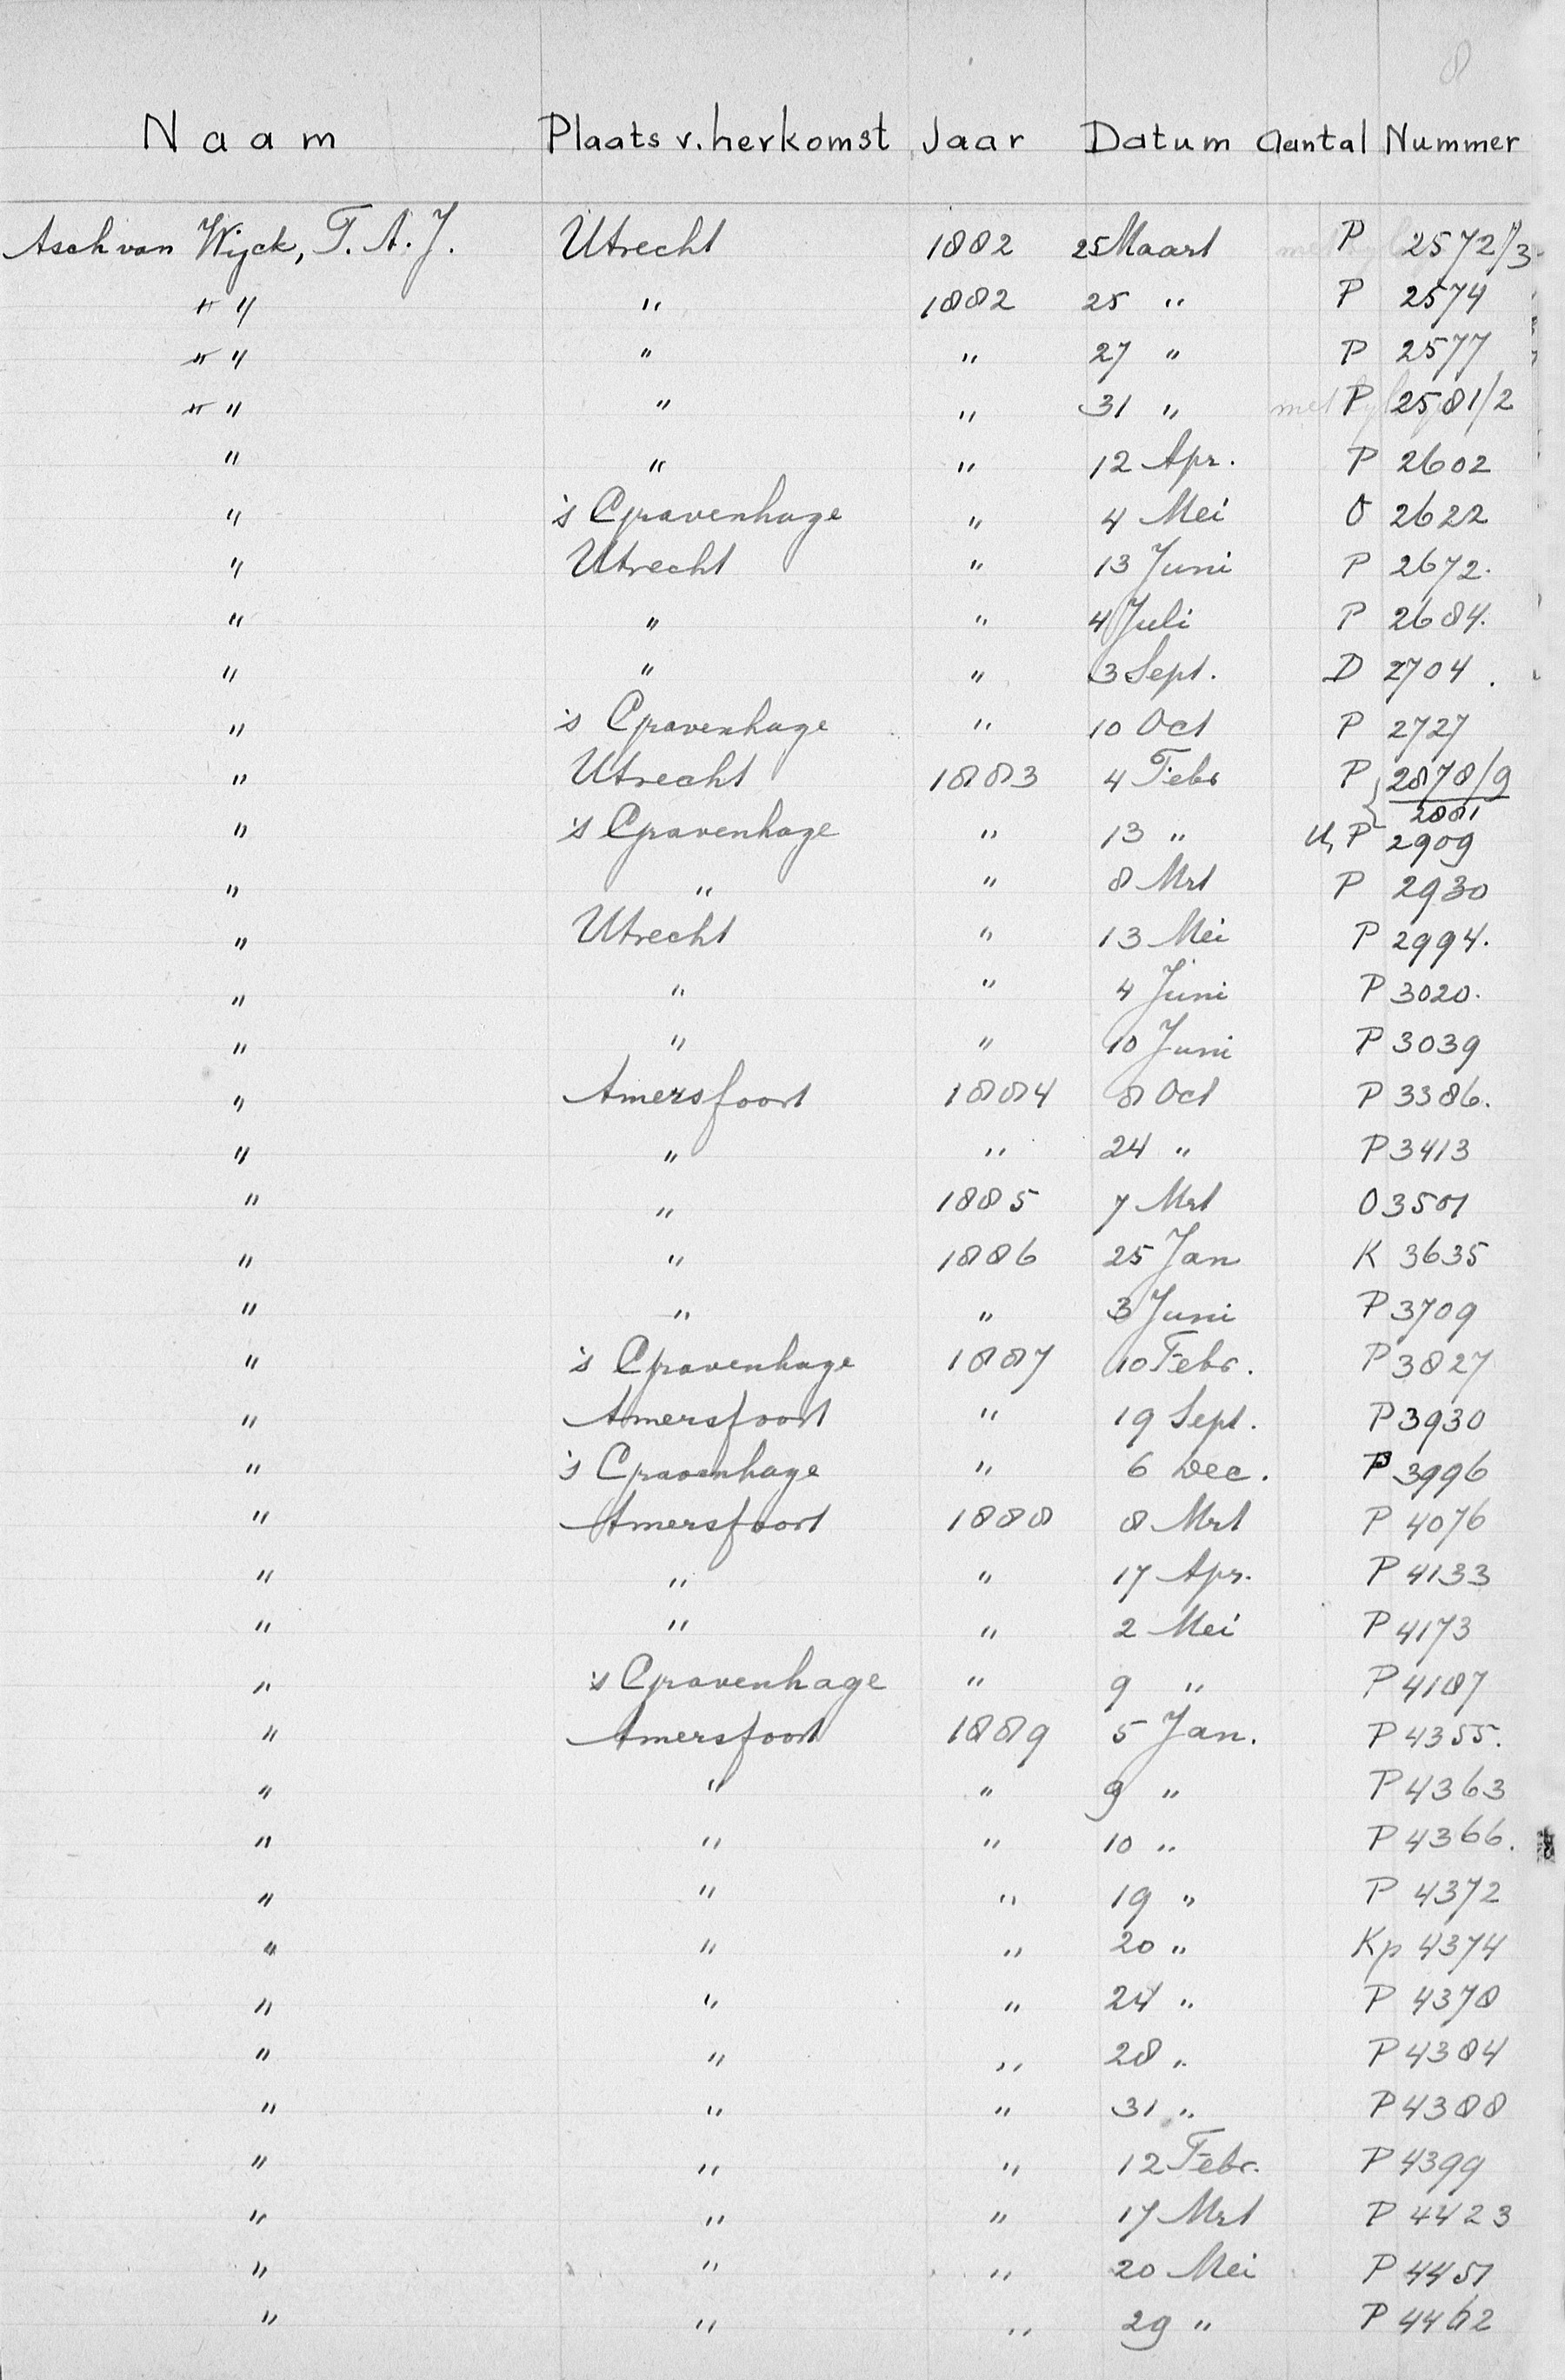 8
Naam Plaats v. herkomst Jaar Datum Aantal Nummer
Asch van Wijck, T. A. J. Utrecht 1882 25 Maart P 2572/3
" " " 1882 25 " P 2574
" " " " 27 " P 2577
" " " " 31 " met P 2581/2
" " " 12 Apr. P 2602
" 's Gravenhage " 4 Mei O 2622
" Utrecht " 13 Juni P 2672.
" " " 4 Juli P 2684.
" " " 3 Sept. D 2704.
" 's Gravenhage " 10 Oct P 2727
" Utrecht 1883 4 Febr P 2878/9
2881
" 's Gravenhage " 13 " U, P 2909
" " " 8 Mrt P 2930
" Utrecht " 13 Mei P 2994.
" " " 4 Juni P 3020.
" " " 10 Juni P 3039
" Amersfoort 1884 8 Oct P 3386.
" " " 24 " P 3413
" " 1885 7 Mrt O 3501
" " 1886 25 Jan K 3635
" " " 3 Juni P 3709
" 's Gravenhage 1887 10 Febr. P 3827
" Amersfoort " 19 Sept. P 3930
" 's Gravenhage " 6 Dec. P 3996
" Amersfoort 1888 8 Mrt P 4076
" " " 17 Apr. P 4133
" " " 2 Mei P 4173
" 's Gravenhage " 9 " P 4187
" Amersfoort 1889 5 Jan. P 4355.
" " " 9 " P 4363
" " " 10 " P 4366.
" " " 19 " P 4372
" " " 20 " Kp 4374
" " " 24 " P 4378
" " " 28 " P 4384
" " " 31 " P 4388
" " " 12 Febr. P 4399
" " " 17 Mrt P 4423
" " " 20 Mei P 4451
" " " 29 " P 4462